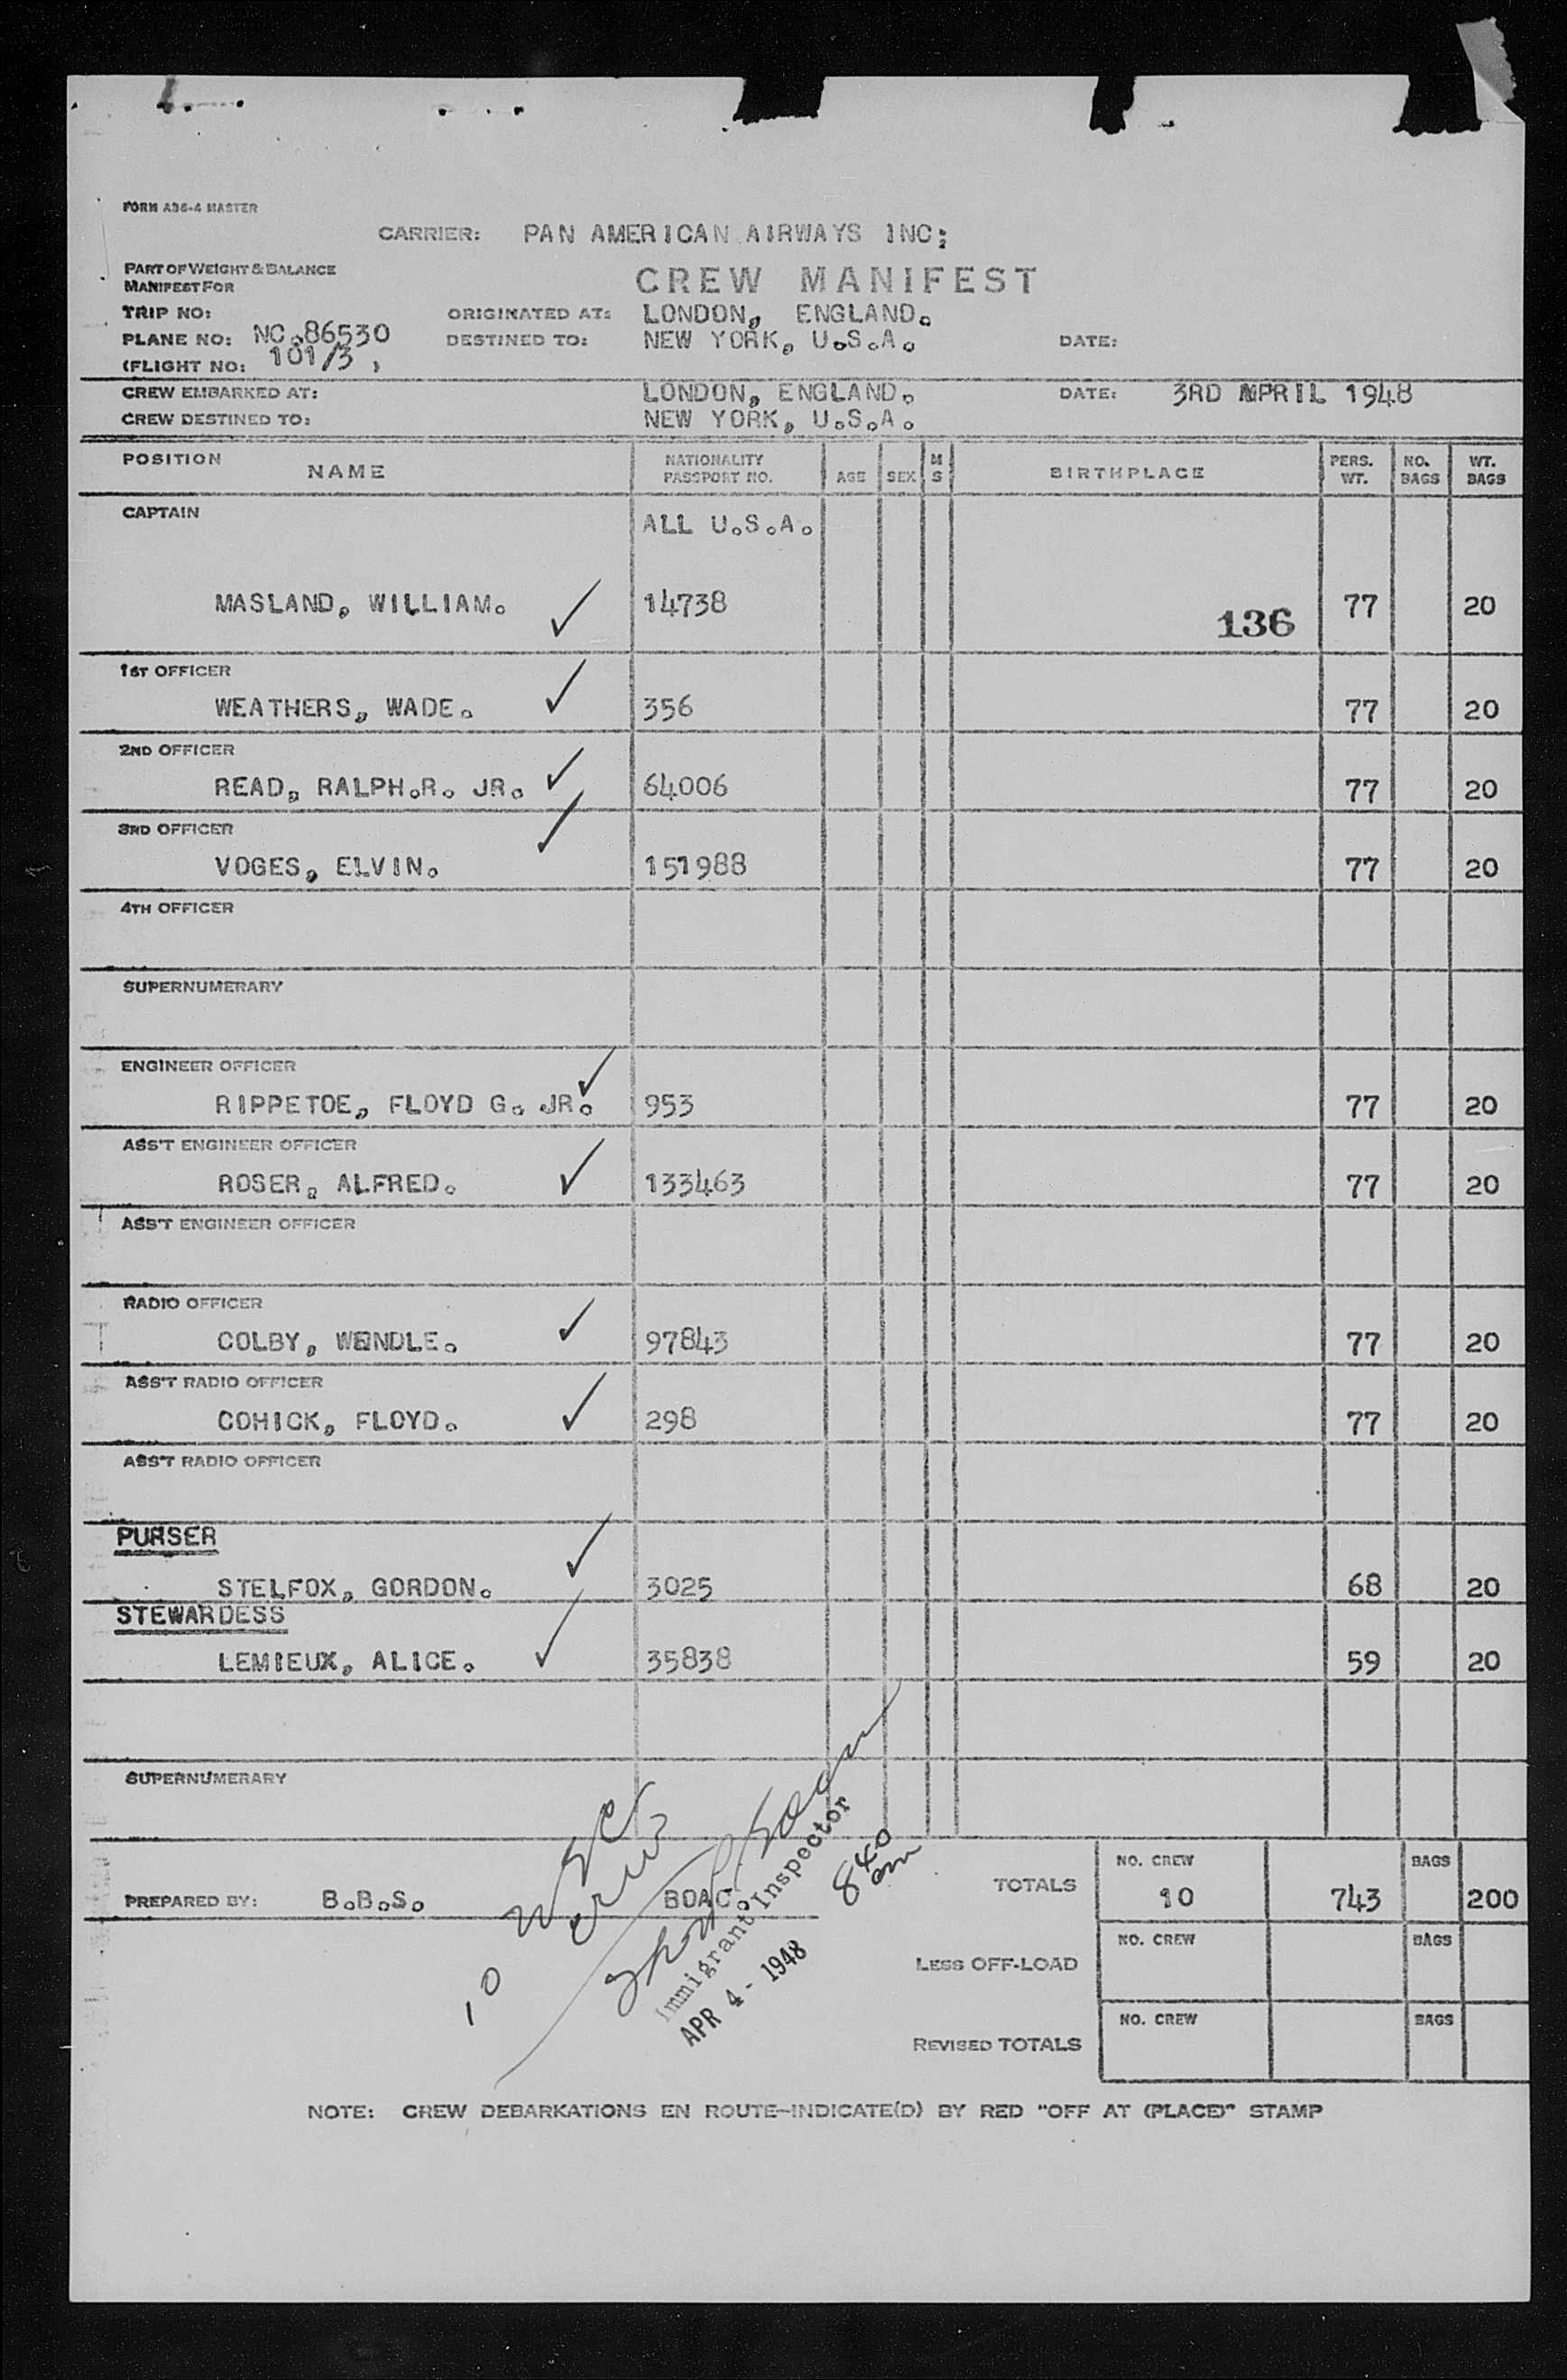 FORM A36-4 MASTER
CARRIER: PAN AMERICAN AIRWAYS INC;
PART OF WEIGHT & BALANCE
MANIFEST FOR
CREW MANIFEST
TRIP NO: ORIGINATED AT: LONDON, ENGLAND.
PLANE NO: NC.86530 DESTINED TO: NEW YORK, U.S.A. DATE:
(FLIGHT NO: 101/3 )
CREW EMBARKED AT: LONDON, ENGLAND. DATE: 3RD APRIL 1948
CREW DESTINED TO: NEW YORK, U.S.A.
POSITION NAME NATIONALITY PASSPORT NO. AGE SEX M S BIRTHPLACE PERS. WT. NO. BAGS WT. BAGS
CAPTAIN ALL U.S.A.
MASLAND, WILLIAM. ✓ 14738 136 77 20
1ST OFFICER
WEATHERS, WADE. ✓ 356 77 20
2ND OFFICER
READ, RALPH.R. JR. ✓ 64006 77 20
3RD OFFICER
VOGES, ELVIN. ✓ 151988 77 20
4TH OFFICER
SUPERNUMERARY
ENGINEER OFFICER
RIPPETOE, FLOYD G. JR. ✓ 953 77 20
ASS'T ENGINEER OFFICER
ROSER, ALFRED. ✓ 133463 77 20
ASS'T ENGINEER OFFICER
RADIO OFFICER
COLBY, WENDLE. ✓ 97843 77 20
ASS'T RADIO OFFICER
COHICK, FLOYD. ✓ 298 77 20
ASS'T RADIO OFFICER
PURSER
STELFOX, GORDON. ✓ 3025 68 20
STEWARDESS
LEMIEUX, ALICE. ✓ 35838 59 20
SUPERNUMERARY
PREPARED BY: B.B.S. BOAC. TOTALS NO. CREW 10 743 BAGS 200
10 USC
Immigrant Inspector
APR 4 - 1948
840 am
LESS OFF-LOAD NO. CREW BAGS
REVISED TOTALS NO. CREW BAGS
NOTE: CREW DEBARKATIONS EN ROUTE-INDICATE(D) BY RED "OFF AT (PLACE)" STAMP